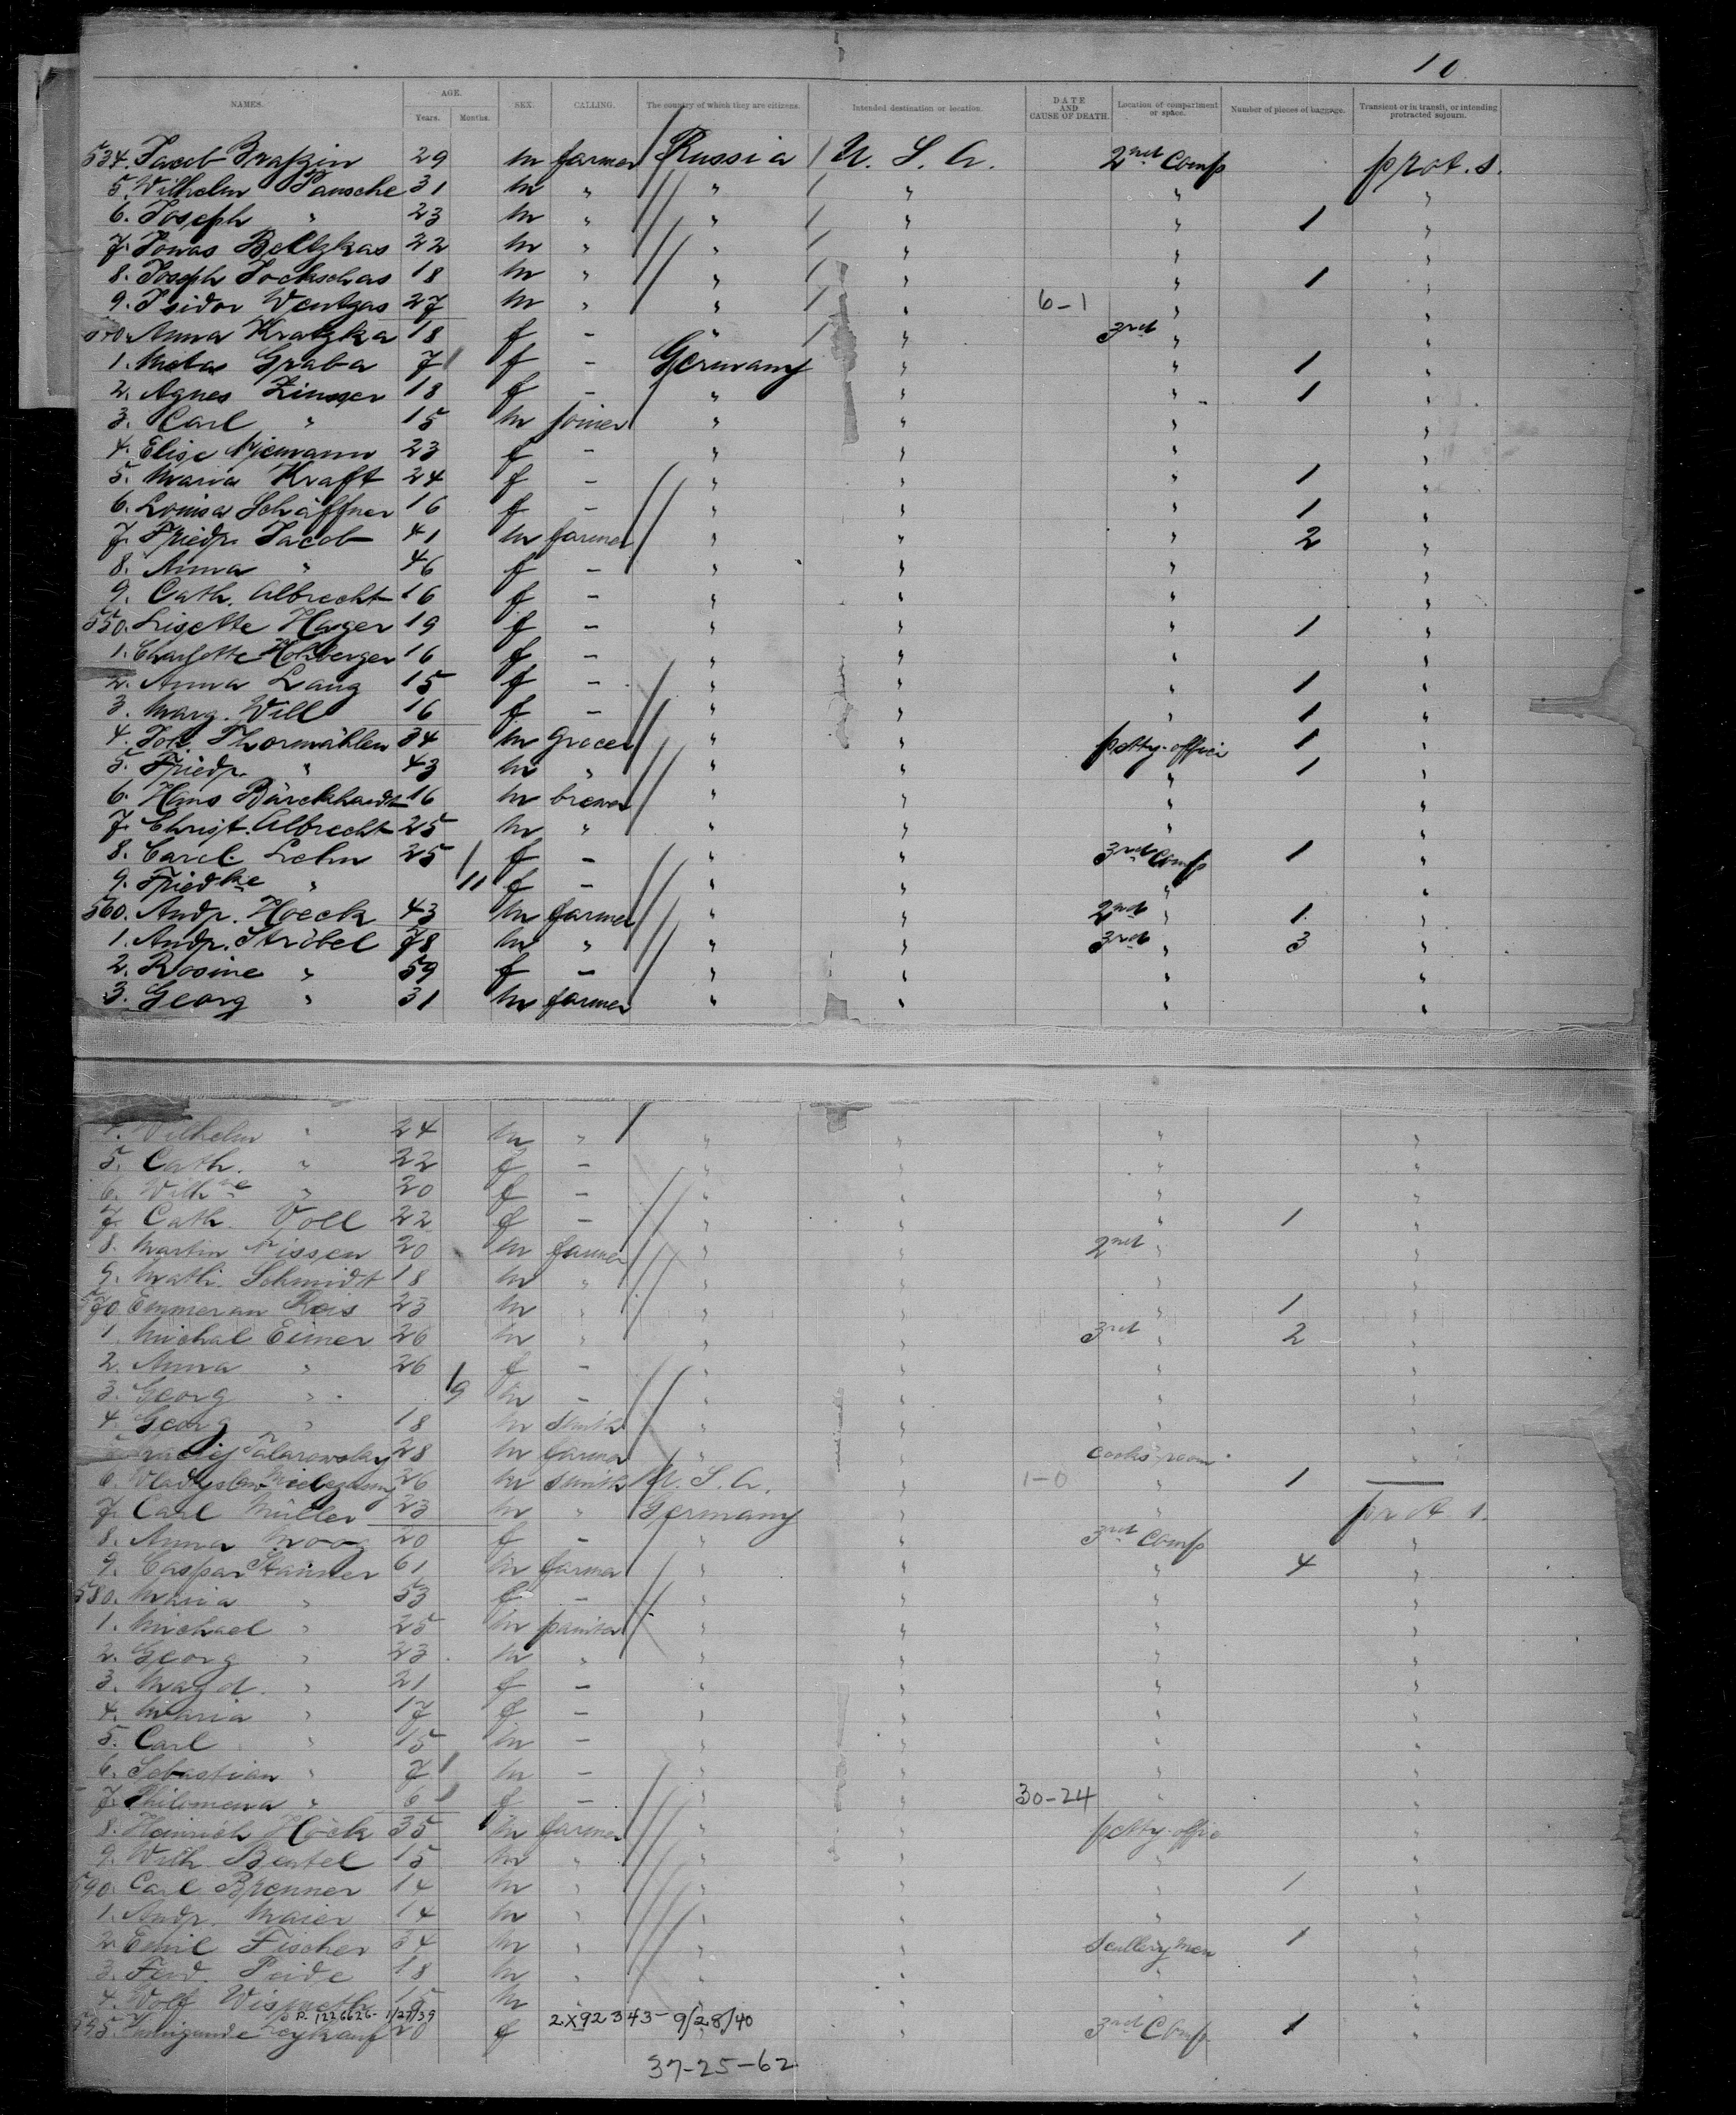 10
NAMES. AGE. Years. Months. SEX. CALLING. The country of which they are citizens. Intended destination or location. DATE AND CAUSE OF DEATH. Location of compartment or space. Number of pieces of baggage. Transient or in transit, or intending protracted sojourn.
534. Jacob 29 m farmer Russia U. S. A. 2nd Comp prot. s.
5. Wilhelm Pansche 31 m " " " " "
6. Joseph " 23 m " " " " 1 "
7. Jonas Beltzkas 22 m " " " " "
8. Joseph Jockschas 18 m " " " " 1 "
9. Isidor Wentzas 27 m " " " 6-1 " "
540. Anna Kratzka 18 f - " " 3rd " "
1. Graba 7 f - Germany " " 1 "
2. Agnes Zinsser 18 f - " " " 1 "
3. Carl " 15 m joiner " " " "
4. Elise Njemann 23 f - " " " "
5. Maria Kraft 24 f - " " " 1 "
6. Louisa Schäffner 16 f - " " " 1 "
7. Friedr. Jacob 41 m farmer " " " 2 "
8. Anna " 46 f - " " " "
9. Cath. Albrecht 16 f - " " " "
550. Lisette Hager 19 f - " " " 1 "
1. Charlotte Holzberger 16 f - " " " "
2. Anna Lang 15 f - " " " 1 "
3. Marg. Will 16 f - " " " 1 "
4. Joh. Thormählen 34 m grocer " " petty-officer 1 "
5. Friedr. " 43 m " " " " 1 "
6. Hans Bärckhardt 16 m brewer " " " "
7. Christ. Albrecht 25 m " " " " "
8. Carol. Lehn 25 f - " " 3rd Comp 1 "
9. Friedke " 11 f - " " " "
560. Andr. Hoeck 43 m farmer " " 2nd " 1 "
1. Andr. Ströbel 78 m " " " 3rd " 3 "
2. Rosine " 59 f - " " " "
3. Georg " 31 m farmer " " " "
4. Wilhelm " 24 m " " " " "
5. Cath. " 22 f - " " " "
6. Wilhne " 20 f - " " " "
7. Cath. Voll 22 f - " " " 1 "
8. Martin Nissen 20 m farmer " " 2nd " "
9. Math. Schmidt 18 m " " " " "
570 Emmeran Rois 23 m " " " " 1 "
1. Michal Eimer 26 m " " " 3rd " 2 "
2. Anna " 26 f - " " " "
3. Georg " 9 m - " " " "
4. Georg " 18 m smith " " " "
28 m farmer " " cooks room "
6. 26 m smith U. S. A. " 1-0 " 1 —
7. Carl Müller 23 m " Germany " " prot s.
8. Anna Moog 20 f - " " 3rd Comp "
9. Caspar 61 m farmer " " " 4 "
580. Maria " 53 f - " " " "
1. Michael " 25 m painter " " " "
2. Georg " 23 m " " " " "
3. Magd. " 21 f - " " " "
4. Maria " 17 f - " " " "
5. Carl " 15 m - " " " "
6. Sebastian " 7 m - " " " "
7. Philomena " 6 f - " " 30-24 " "
8. Heinrich Höck 35 m farmer " " petty-offic "
9. Wilh. Bertel 15 m " " " " "
590. Carl Brenner 14 m " " " " 1 "
1. Andr. Maier 14 m " " " " "
2. Emil Fischer 34 m " " " Scullery men 1 "
3. Ferd. Peide 18 m " " " " "
4. Wolf 15 m " " " " "
P. 1226626- 1/27/39 2x92343-9/28/40
595. 20 f " " 3rd Comp 1 "
37-25-62